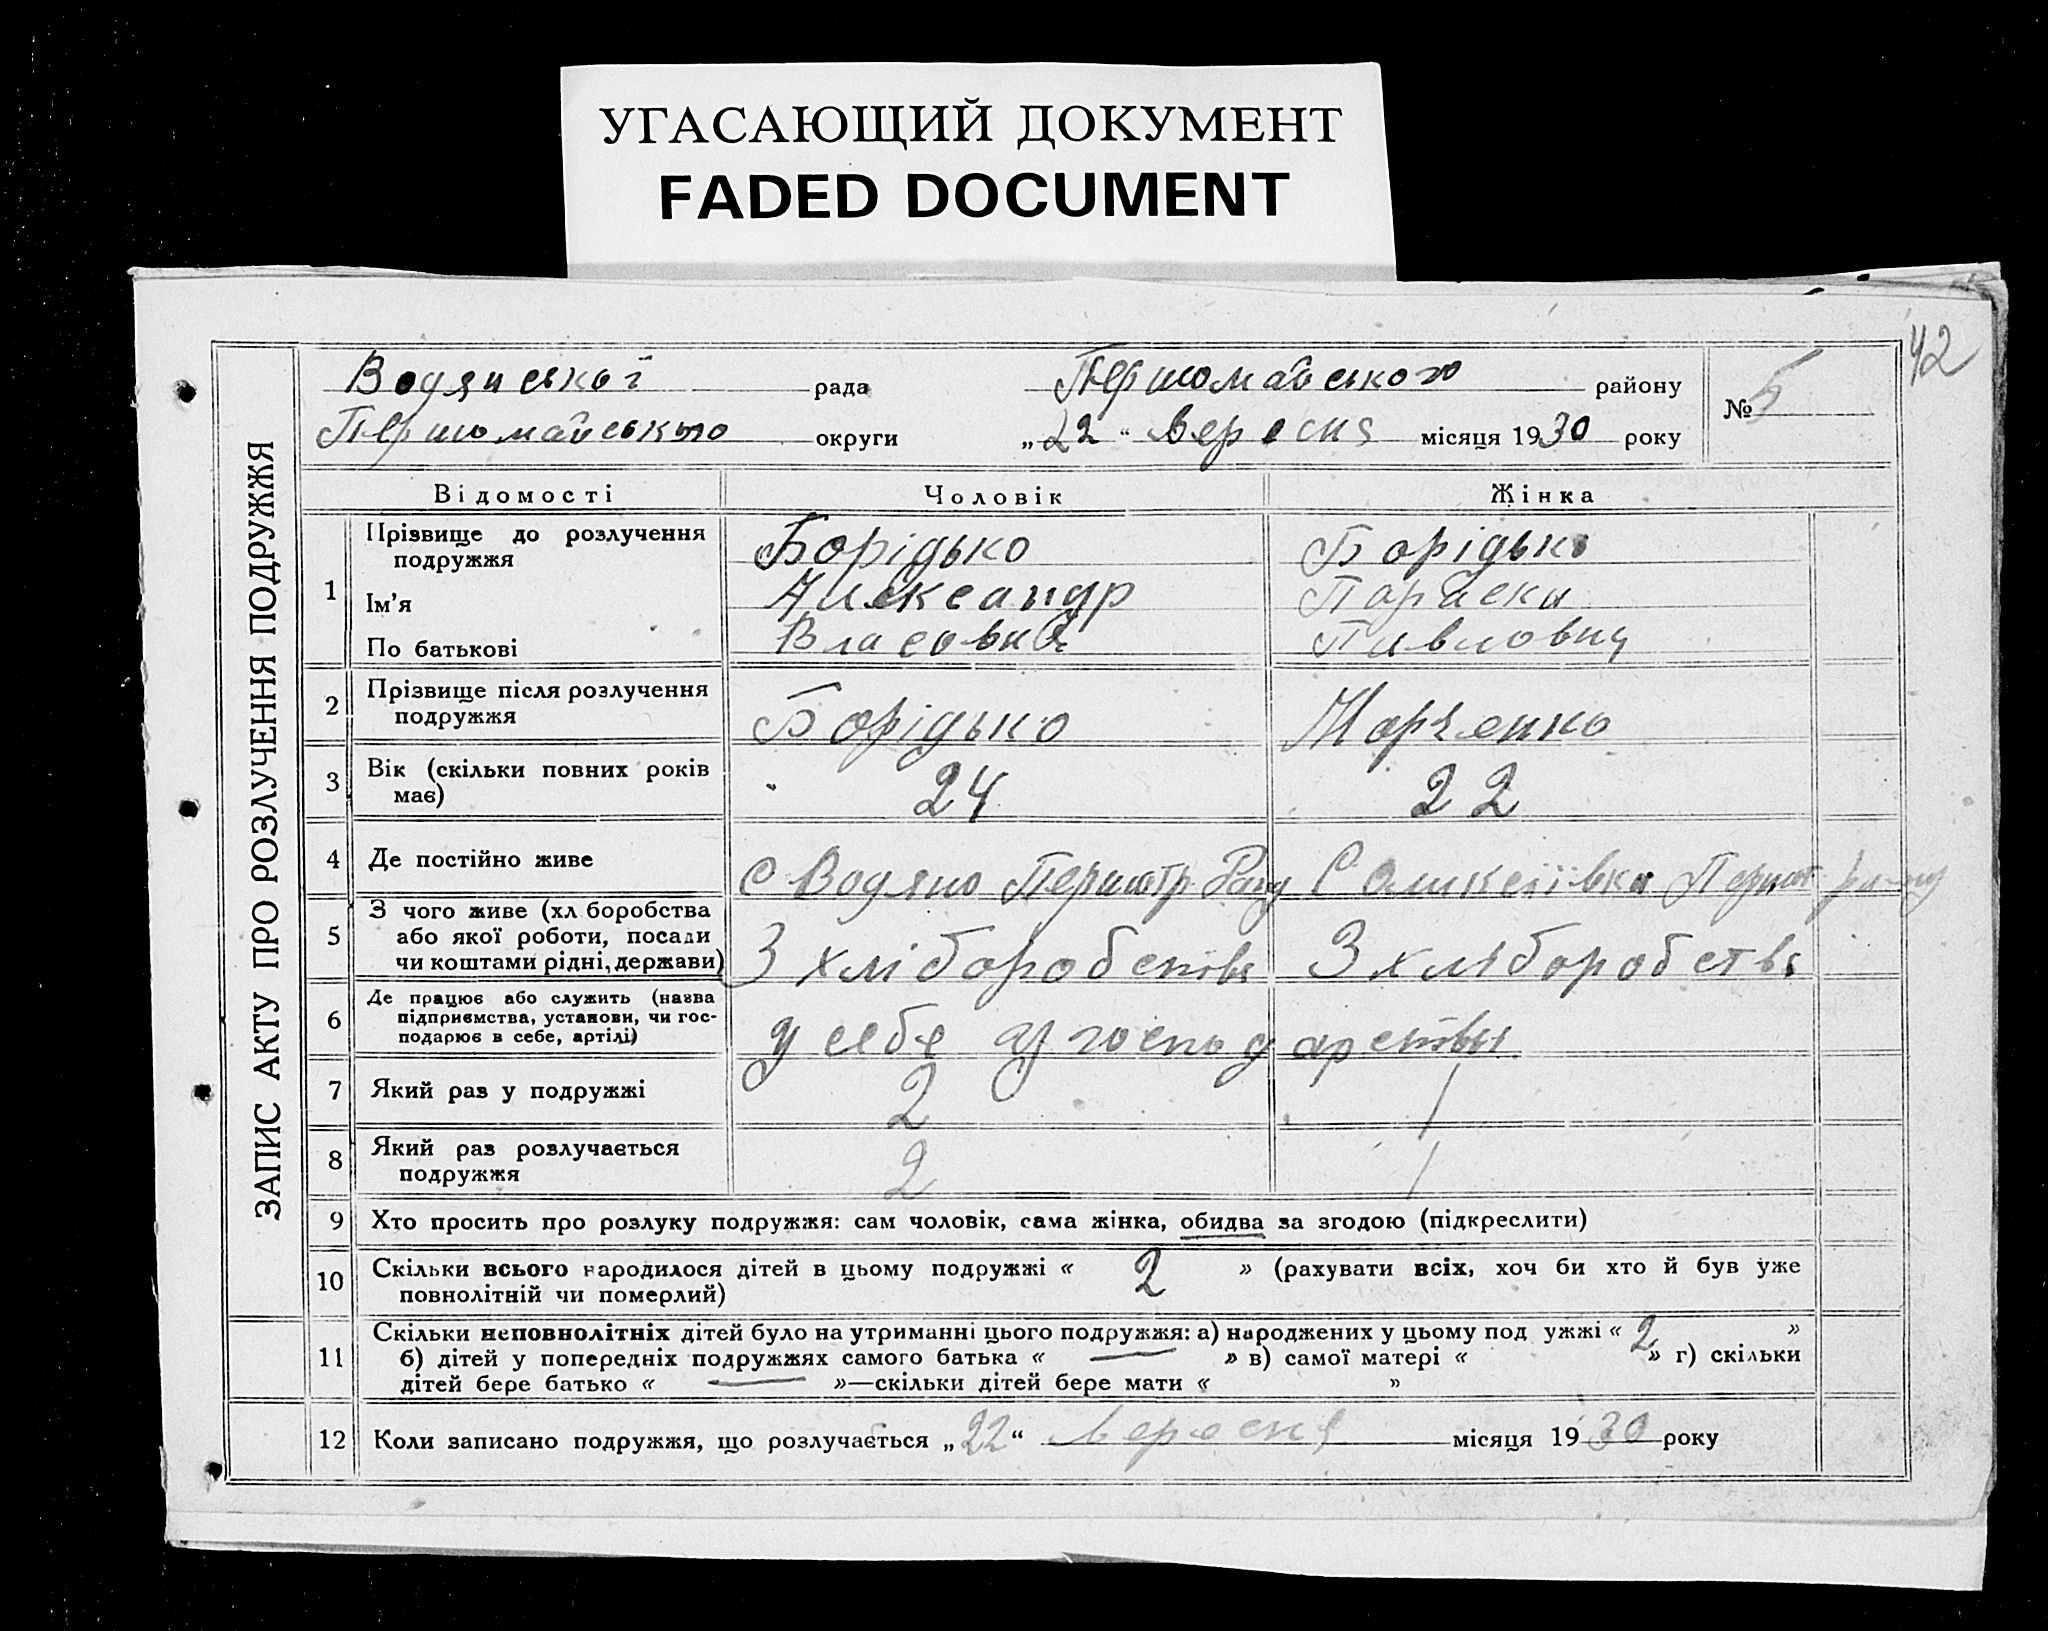 УГАСАЮЩИЙ ДОКУМЕНТ
FADED DOCUMENT
42
ЗАПИС АКТУ ПРО РОЗЛУЧЕННЯ ПОДРУЖЖЯ
Водянської рада Першомайського району
№ 5
Першомайського округи „22“ вересня місяця 1930 року
Відомості Чоловік Жінка
1 Прізвище до розлучення подружжя Борідько Борідько
Ім'я Александр Параска
По батькові Власович Павловна
2 Прізвище після розлучення подружжя Борідько Марченко
3 Вік (скільки повних років має) 24 22
4 Де постійно живе С Водяно Першотр Рай С
5 З чого живе (хл боробства або якої роботи, посади чи коштами рідні, держави) З хліборобства З хліборобства
6 Де працює або служить (назва підприємства, установи, чи господарює в себе, артілі) у себе у господарстві
7 Який раз у подружжі 2 1
8 Який раз розлучається подружжя 2 1
9 Хто просить про розлуку подружжя: сам чоловік, сама жінка, обидва за згодою (підкреслити)
10 Скільки всього народилося дітей в цьому подружжі « 2 » (рахувати всіх, хоч би хто й був уже
повнолітній чи померлий)
11 Скільки неповнолітніх дітей було на утриманні цього подружжя: а) народжених у цьому под ужжі « 2 »
б) дітей у попередніх подружжях самого батька « — » в) самої матері « » г) скільки
дітей бере батько « — »—скільки дітей бере мати « »
12 Коли записано подружжя, що розлучається „22“ вересня місяця 1930 року